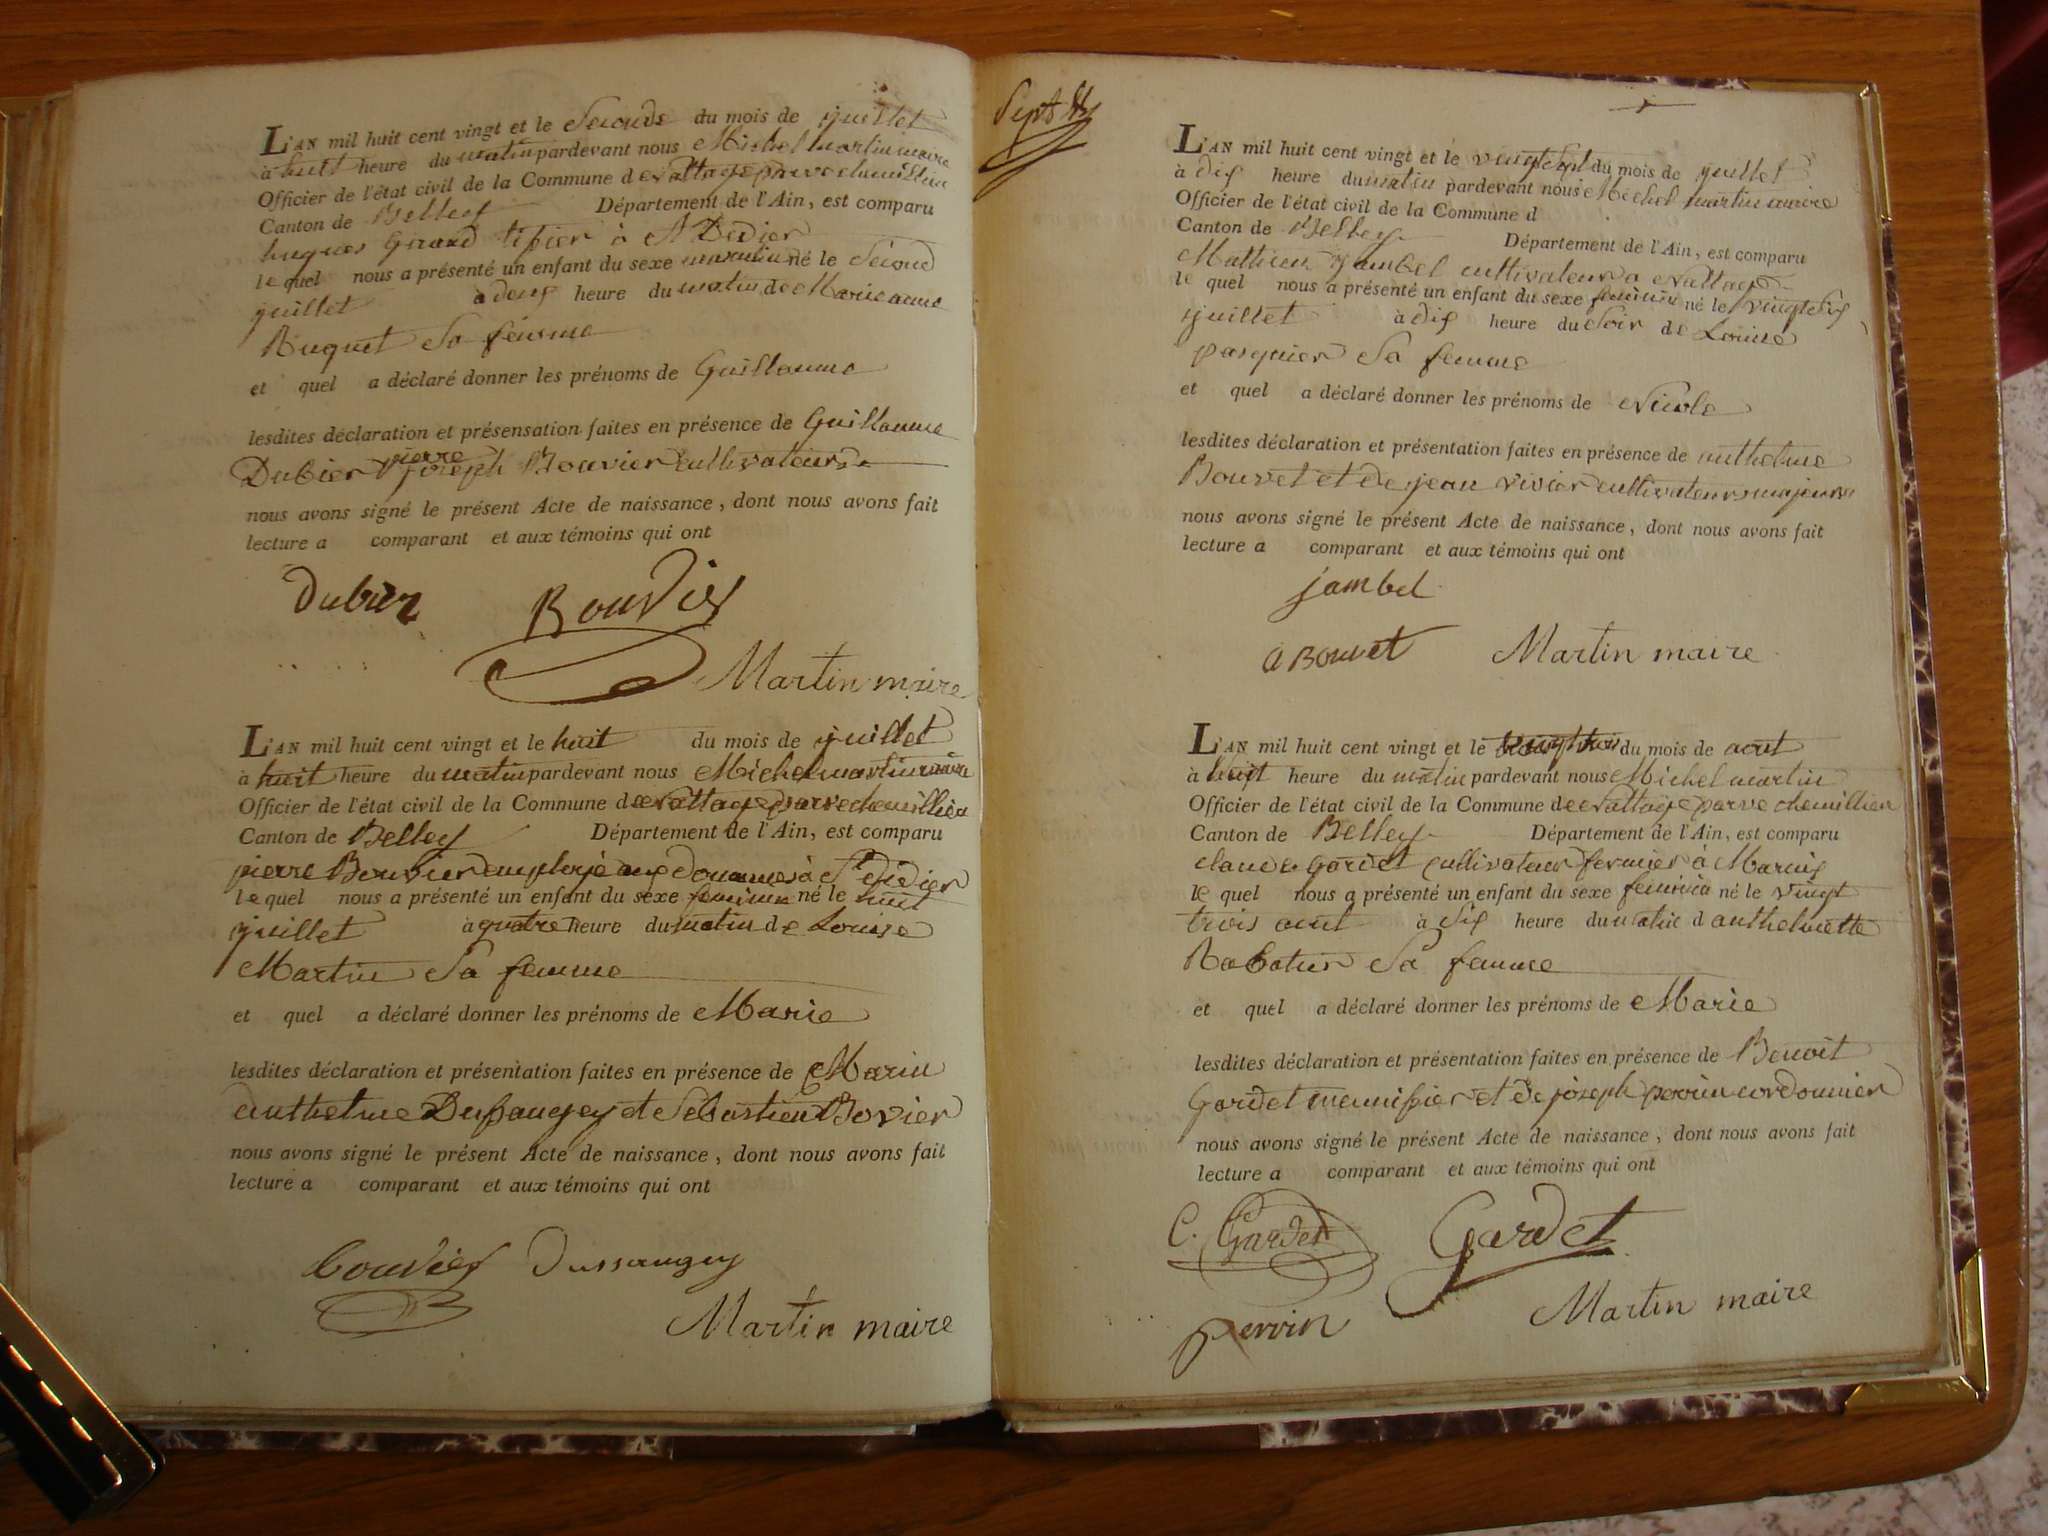 L'AN mil huit cent vingt et le Seconde du mois de juillet
à huit heure du matin pardevant nous Michel Martin maire
Officier de l'état civil de la Commune de Nattage parve chemillieu
Canton de Belley Département de l'Ain, est comparu
hugues Girard tissier à St Didier
le quel nous a présenté un enfant du sexe masculin né le Second
juillet à deux heure du matin de Marie anne
Buquet Sa femme
et quel a déclaré donner les prénoms de Guillaume
lesdites déclaration et présensation faites en présence de Guillaume
Dubier pierre joseph Bouvier cultivateurs
nous avons signé le présent Acte de naissance, dont nous avons fait
lecture a comparant et aux témoins qui ont
Dubier Bouvier
Martin maire
L'AN mil huit cent vingt et le huit du mois de juillet
à huit heure du matin pardevant nous Michel martin maire
Officier de l'état civil de la Commune de Nattage parve chemillieu
Canton de Belley Département de l'Ain, est comparu
pierre Bouvier employé aux Douannes à St Didier
le quel nous a présenté un enfant du sexe feminin né le huit
juillet à quatre heure du matin de Louise
Martin Sa femme
et quel a déclaré donner les prénoms de Marie
lesdites déclaration et présentation faites en présence de Marin
anthelme Dussaugey et Sebastien Bovier
nous avons signé le présent Acte de naissance, dont nous avons fait
lecture a comparant et aux témoins qui ont
bouvier Dussaugey
Martin maire
L'AN mil huit cent vingt et le vingt sept du mois de juillet
à dix heure du matin pardevant nous Michel martin maire
Officier de l'état civil de la Commune d
Canton de Belley Département de l'Ain, est comparu
Mathieu jambel cultivateur a Nattage
le quel nous a présenté un enfant du sexe feminin né le vingt Six
juillet à dix heure du Soir de Louise
pasquier Sa femme
et quel a déclaré donner les prénoms de Nicole
lesdites déclaration et présentation faites en présence de anthelme
Bouvet et de jean vivier cultivateurs majeurs
nous avons signé le présent Acte de naissance, dont nous avons fait
lecture a comparant et aux témoins qui ont
jambel
a Bouvet Martin maire
L'AN mil huit cent vingt et le vingt trois du mois de aout
à huit heure du matin pardevant nous Michel martin
Officier de l'état civil de la Commune de Nattage parve chemillieu
Canton de Belley Département de l'Ain, est comparu
claude Gardet cultivateur fermier à Marnix
le quel nous a présenté un enfant du sexe feminin né le vingt
trois aout à Six heure du matin d anthelmette
Rabatin Sa femme
et quel a déclaré donner les prénoms de Marie
lesdites déclaration et présentation faites en présence de Benoit
Gardet menuissier et de joseph perrin cordonnier
nous avons signé le présent Acte de naissance, dont nous avons fait
lecture a comparant et aux témoins qui ont
C. Gardet Gardet
perrin Martin maire